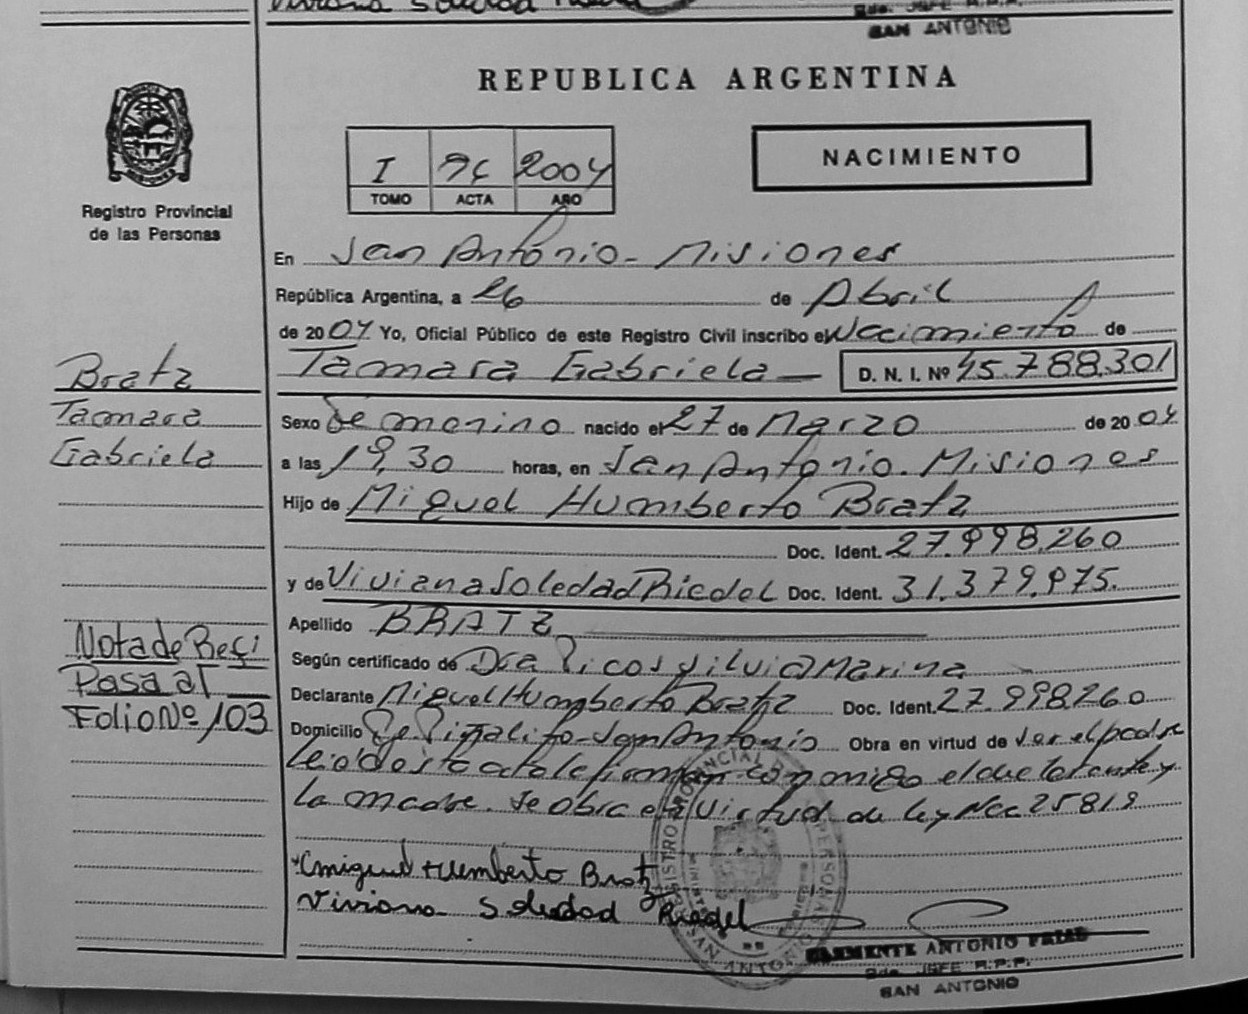 Viviana Soledad
SAN ANTONIO
REPUBLICA ARGENTINA
Registro Provincial
de las Personas
I 2004
TOMO ACTA AÑO
NACIMIENTO
En San Antonio - Misiones
República Argentina, a 26 de Abril
de 2004 Yo, Oficial Público de este Registro Civil inscribo el Nacimiento de
Tamara Gabriela D. N. I. Nº 45.788.301
Bratz
Tamara
Gabriela
Sexo Femenino nacido el 27 de Marzo de 2004
a las 19,30 horas, en San Antonio. Misiones
Hijo de Miguel Humberto Bratz
Doc. Ident. 27.998.260
y de Viviana Soledad Riedel Doc. Ident. 31.379.975.
Apellido BRATZ
Según certificado de Dra Picos Silvia Marina
Declarante Miguel Humberto Bratz Doc. Ident. 27.998.260
Domicilio San Antonio Obra en virtud de ser el padre
Leida esta acta la firman conmigo el declarante y
la madre. Se obra en virtud de ley Nº 25819
Nota de
Pasa al
Folio Nº 103
Miguel Humberto Bratz
Viviana Soledad Riedel
SAN ANTONIO
CLEMENTE ANTONIO
JEFE R.P.P.
SAN ANTONIO